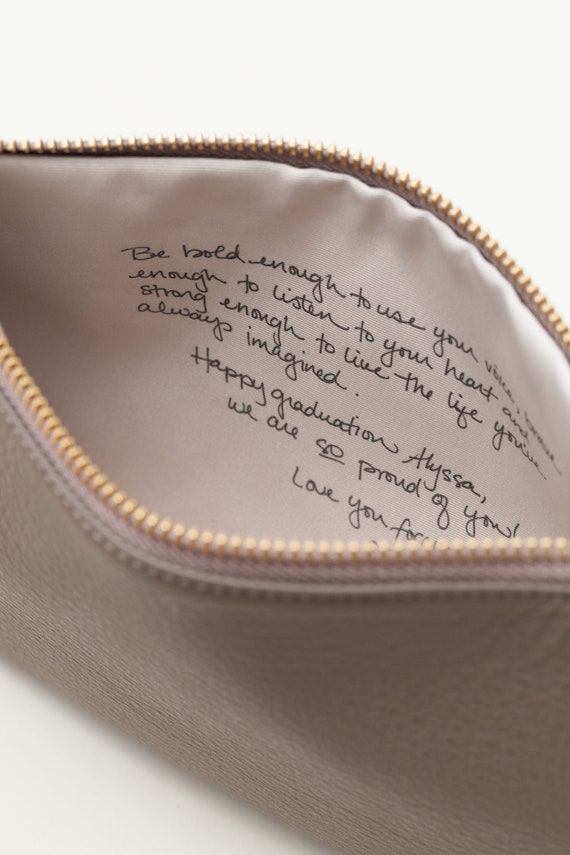 Be bold enough to use your voice, brave
enough to listen to your heart and
strong enough to live the life you've
always imagined.
Happy graduation Alyssa,
we are so proud of you!
Love you